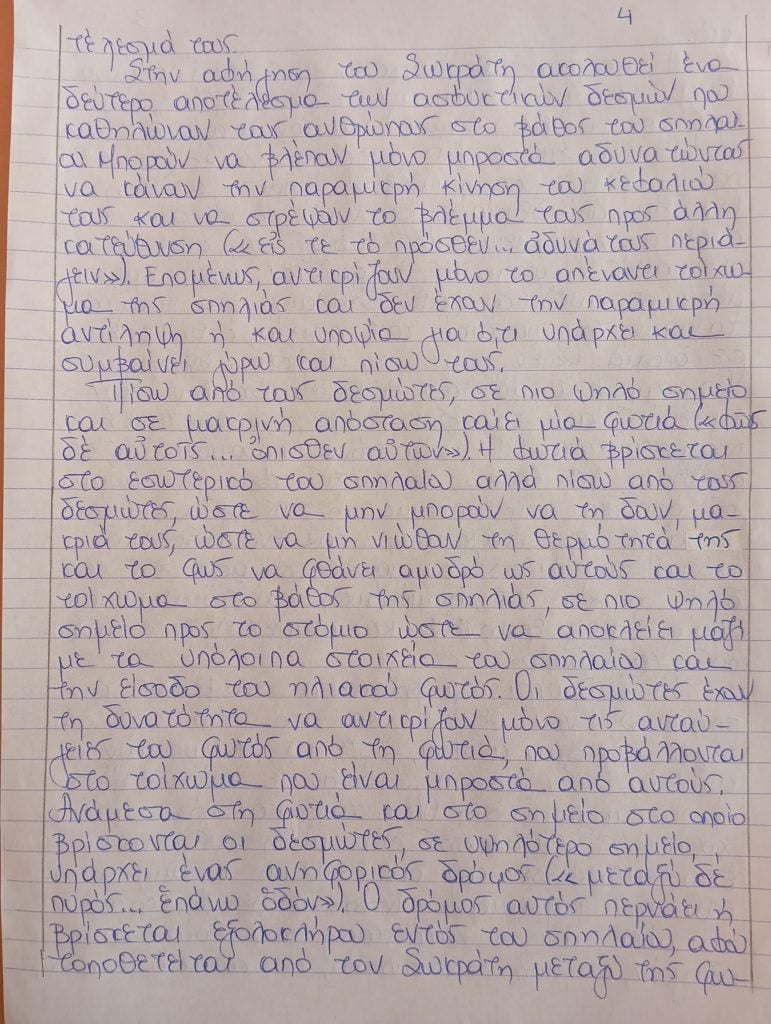 4
τέλεσμά τους.
Στην αφήγηση του Σωκράτη ακολουθεί ένα
δεύτερο αποτέλεσμα των ασφυκτικών δεσμών που
καθηλώνουν τους ανθρώπους στο βάθος του σπηλαί-
ου. Μπορούν να βλέπουν μόνο μπροστά αδυνατώντας
να κάνουν την παραμικρή κίνηση του κεφαλιού
τους και να στρέψουν το βλέμμα τους προς άλλη
κατεύθυνση («εἰς τε τό πρόσθεν... ἀδυνάτους περιά-
γειν»). Επομένως, αντικρίζουν μόνο το απέναντι τοίχω-
μα της σπηλιάς και δεν έχουν την παραμικρή
αντίληψη ή και υποψία για ό,τι υπάρχει και
συμβαίνει γύρω και πίσω τους.
Πίσω από τους δεσμώτες, σε πιο ψηλό σημείο
και σε μακρινή απόσταση καίει μία φωτιά («φῶς
δέ αὐτοῖς... ὄπισθεν αὐτῶν»). Η φωτιά βρίσκεται
στο εσωτερικό του σπηλαίου αλλά πίσω από τους
δεσμώτες, ώστε να μην μπορούν να τη δουν, μα-
κριά τους, ώστε να μη νιώθουν τη θερμότητά της
και το φως να φθάνει αμυδρό ως αυτούς και το
τοίχωμα στο βάθος της σπηλιάς, σε πιο ψηλό
σημείο προς το στόμιο ώστε να αποκλείει μαζί
με τα υπόλοιπα στοιχεία του σπηλαίου και
την είσοδο του ηλιακού φωτός. Οι δεσμώτες έχουν
τη δυνατότητα να αντικρίζουν μόνο τις ανταύ-
γειες του φωτός από τη φωτιά, που προβάλλονται
στο τοίχωμα που είναι μπροστά από αυτούς.
Ανάμεσα στη φωτιά και στο σημείο στο οποίο
βρίσκονται οι δεσμώτες, σε υψηλότερο σημείο,
υπάρχει ένας ανηφορικός δρόμος («μεταξύ δέ
πυρός... ἐπάνω ὁδόν»). Ο δρόμος αυτός περνάει ή
βρίσκεται εξολοκλήρου εντός του σπηλαίου, αφού
τοποθετείται από τον Σωκράτη μεταξύ της φω-